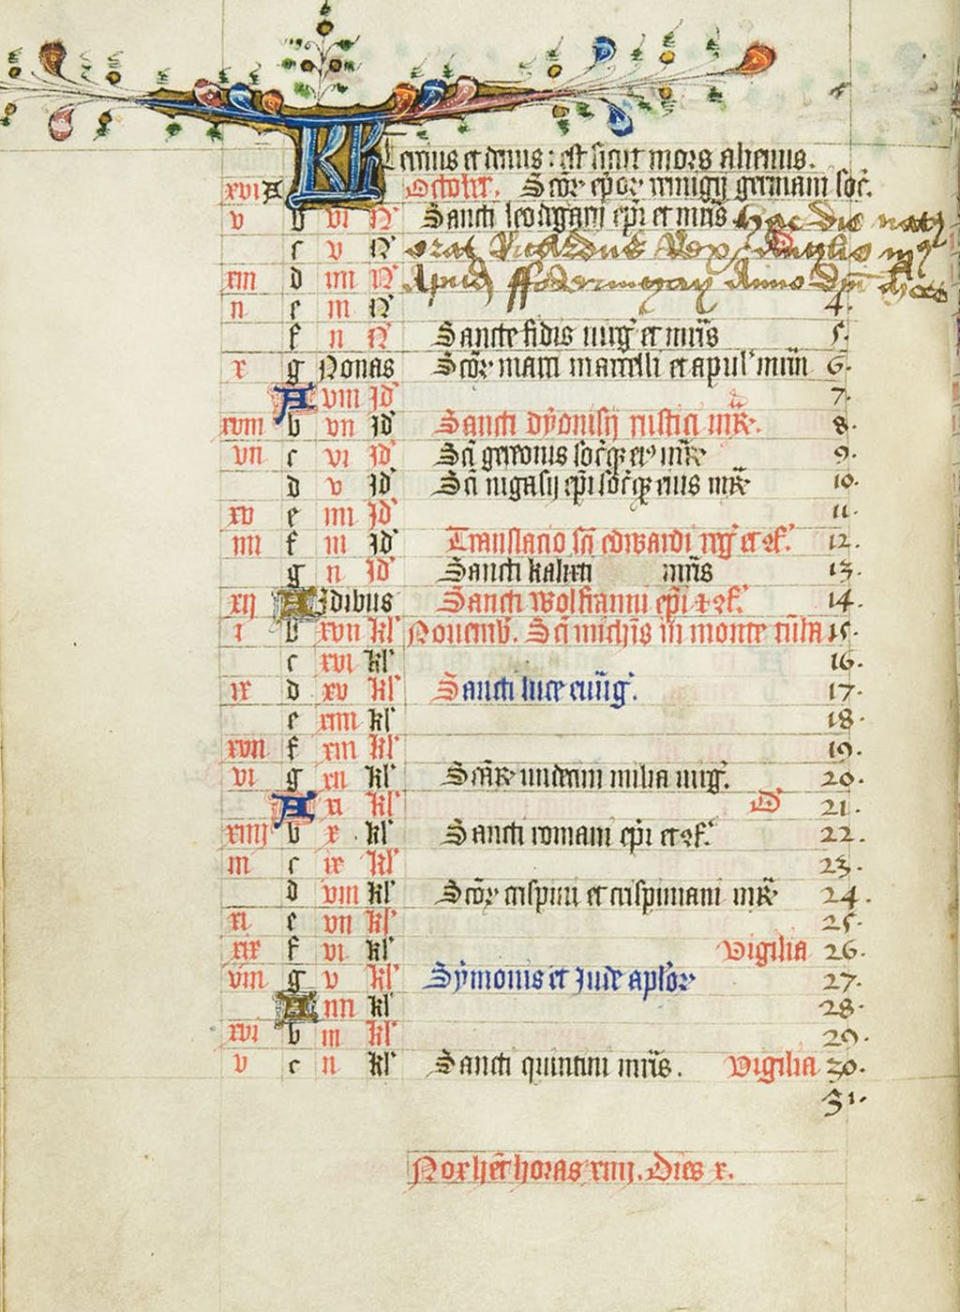 KL Tercius et denus: est sicut mors alienus.
xvi A October. Scor epor remigij germani soc.
v b vi N Sancti leodegarij epi et mris hac die nat9
c v N erat Ricardus Rex Anglie iij9
xiii d iiii N Apud ffoderingay Anno dni Mcccc
ii e iii N 4.
f ii N Sancte fidis uirg et mris 5.
x g Nonas Scor marci marcelli et apul mrm 6.
A viii Id 7.
xviii b vii Id Sancti dyonisij rustici mr. 8.
vii c vi Id Sci gereonis socqe ei9 mr 9.
d v Id Sci nigasij epi socqe eius mr 10.
xv e iiii Id 11.
iiii f iii Id Translacio sci edwardi reg et cf. 12.
g ii Id Sancti kalixti mris 13.
xij A Idibus Sancti wolfranni epi et cf. 14.
i b xvii kl Nouemb. Sci michis in monte tumba 15.
c xvi kl 16.
ix d xv kl Sancti luce euug. 17.
e xiiii kl 18.
xvii f xiii kl 19.
vi g xii kl Scar undecim milia uirg. 20.
A xi kl D 21.
xiiij b x kl Sancti romani epi et cf. 22.
iii c ix kl 23.
d viii kl Scor crispini et crispiniani mr 24.
xi e vii kl 25.
xix f vi kl Vigilia 26.
viii g v kl Symonis et Iude aplor 27.
A iiii kl 28.
xvi b iii kl 29.
v c ii kl Sancti quintini mris. Vigilia 30.
31.
Nox het horas xiiij. Dies x.